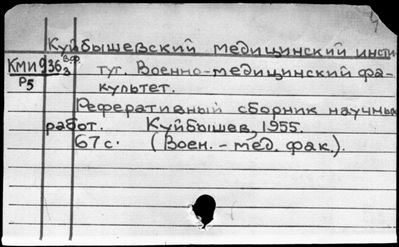 Куйбышевский медицинский инсти-
тут. Военно-медицинский фа-
культет.
Реферативный сборник научных
работ. Куйбышев, 1955.
67 с. (Воен.-мед. фак.).